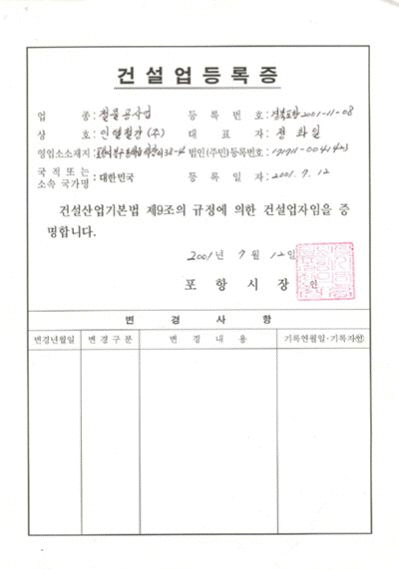 건설업등록증
업 종 : 철물공사업 등 록 번 호 : 경북포항2001-11-08
상 호 : 인열철강(주) 대 표 자 : 정화원
영업소소재지 : 법인(주민)등록번호 : 171711-0041423
국적 또는 소속 국가명 : 대한민국 등 록 일 자 : 2001. 7. 12
건설산업기본법 제9조의 규정에 의한 건설업자임을 증
명합니다.
2001년 7월 12일
포 항 시 장 인
변 경 사 항
변경년월일 변 경 구 분 변 경 내 용 기록연월일·기록자㊞